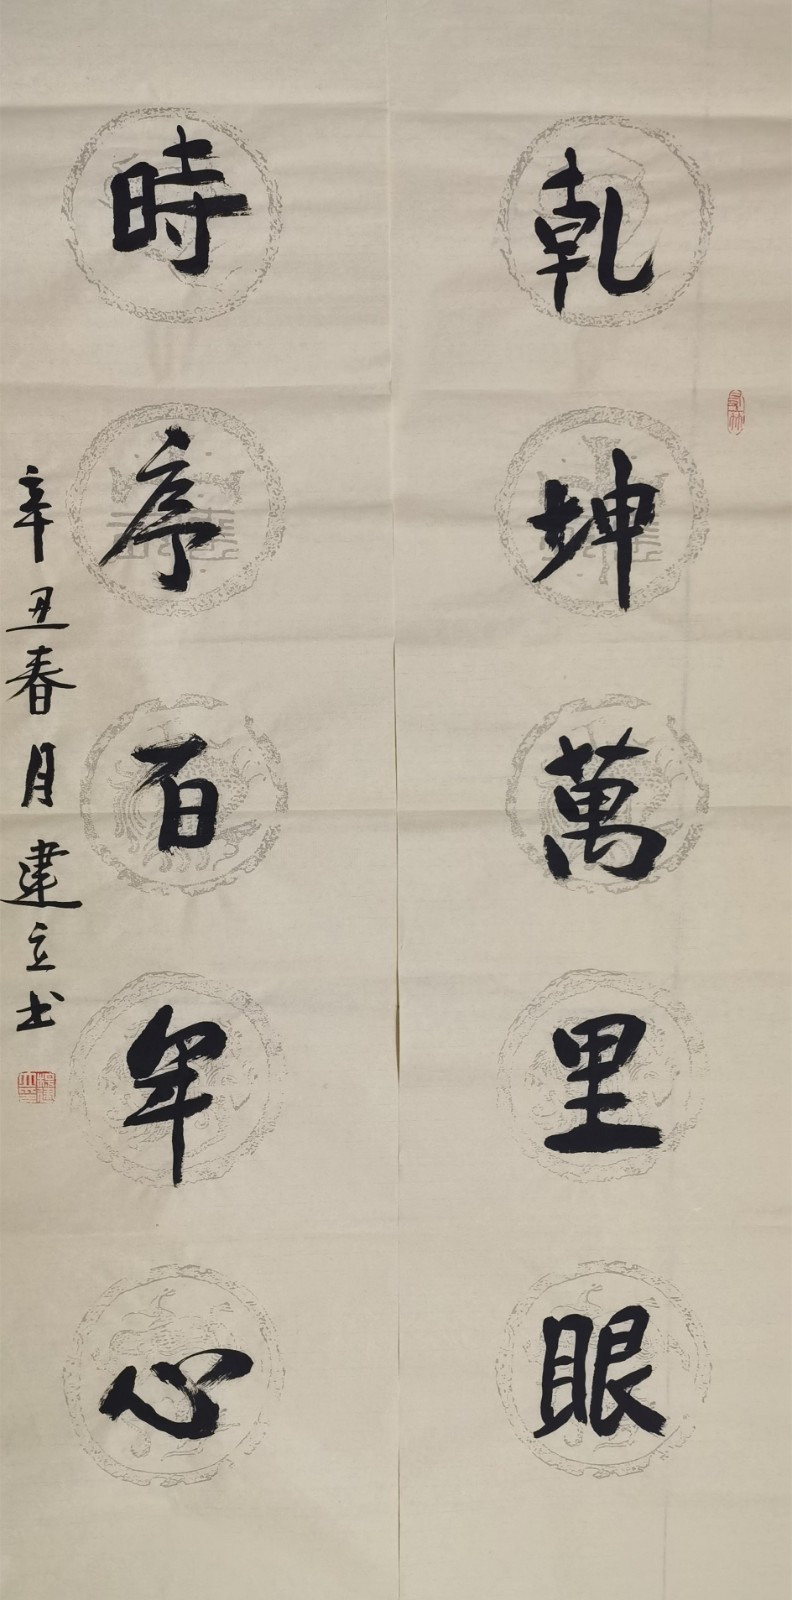 乾坤萬里眼
時序百年心
辛丑春月建立书